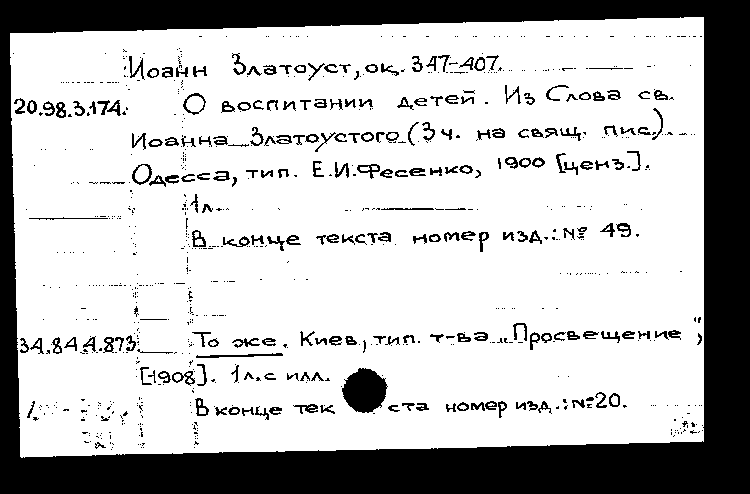 Иоанн Златоуст, ок. 347-407.
20.98.3.174. О воспитании детей. Из Слова св.
Иоанна Златоустого (3 ч. на свящ. пис.).
Одесса, тип. Е.И.Фесенко, 1900 [ценз.].
1л.
В конце текста номер изд.: № 49.
34.84.4.873. То же. Киев, тип. т-ва „Просвещение",
[1908]. 1л. с илл.
В конце текста номер изд.: № 20.